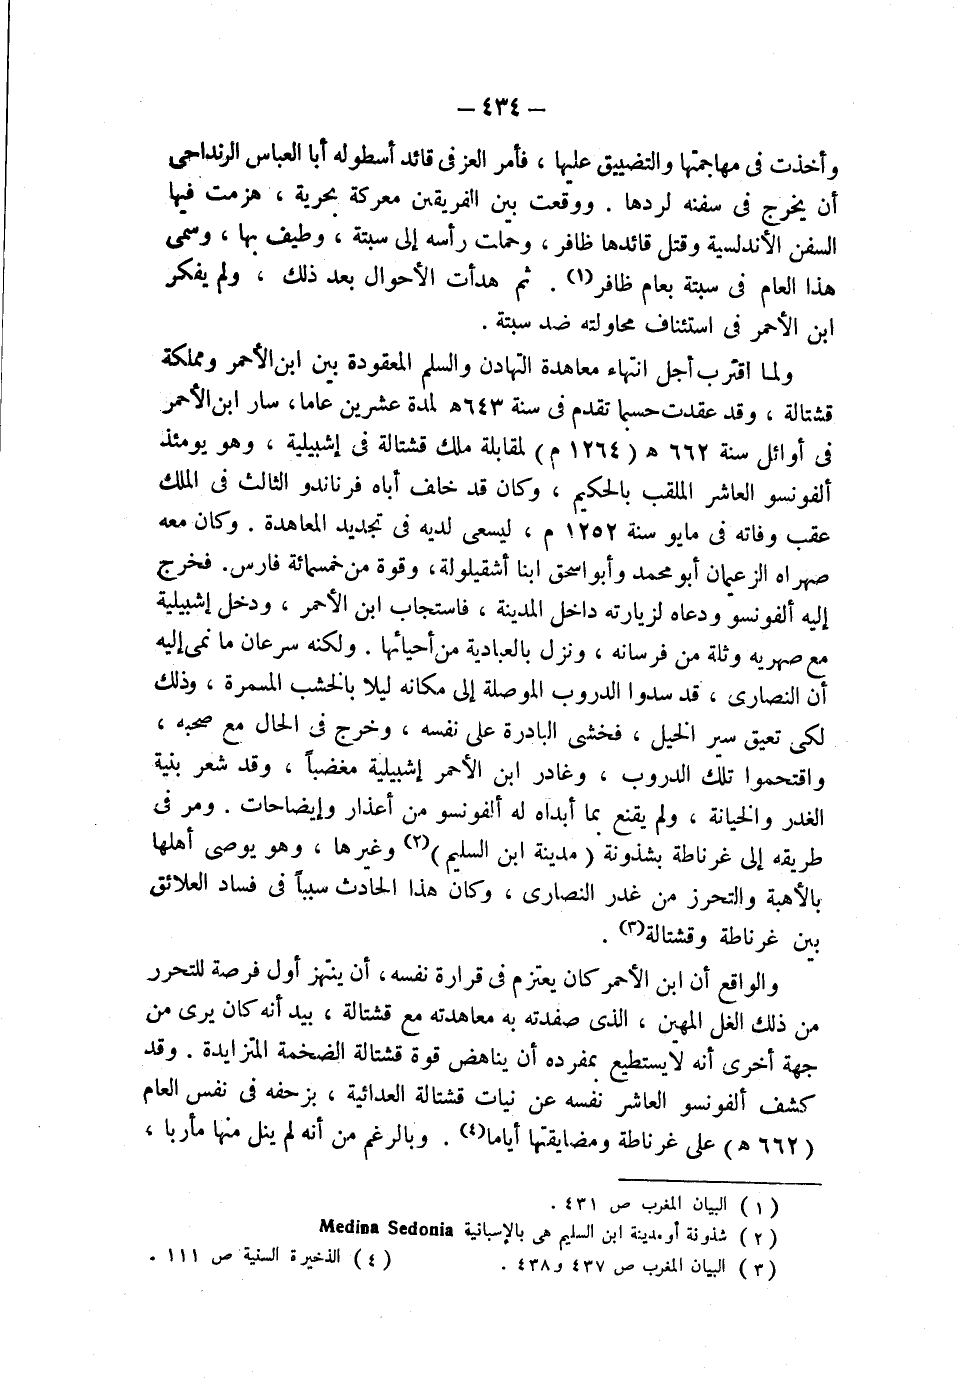 — ٤٣٤ —
وأخذت فى مهاجمتها والتضييق عليها ، فأمر العزفى قائد أسطوله أبا العباس الرنداحى
أن يخرج فى سفنه لردها . ووقعت بين الفريقين معركة بحرية ، هزمت فيها
السفن الأندلسية وقتل قائدها ظافر ، وحملت رأسه إلى سبتة ، وطيف بها ، وسمى
هذا العام فى سبتة بعام ظافر(١) . ثم هدأت الأحوال بعد ذلك ، ولم يفكر
ابن الأحمر فى استئناف محاولته ضد سبتة .
ولما اقترب أجل انتهاء معاهدة التهادن والسلم المعقودة بين ابن الأحمر ومملكة
قشتالة ، وقد عقدت حسبما تقدم فى سنة ٦٤٣ه لمدة عشرين عاما، سار ابن الأحمر
فى أوائل سنة ٦٦٢ ه ( ١٢٦٤ م ) لمقابلة ملك قشتالة فى إشبيلية ، وهو يومئذ
ألفونسو العاشر الملقب بالحكيم ، وكان قد خلف أباه فرناندو الثالث فى الملك
عقب وفاته فى مايو سنة ١٢٥٢ م ، ليسعى لديه فى تجديد المعاهدة . وكان معه
صهراه الزعيمان أبو محمد وأبو اسحق ابنا أشقيلولة، وقوة من خمسمائة فارس. فخرج
إليه ألفونسو ودعاه لزيارته داخل المدينة ، فاستجاب ابن الأحمر ، ودخل إشبيلية
مع صهريه وثلة من فرسانه ، ونزل بالعبادية من أحيائها . ولكنه سرعان ما نمى إليه
أن النصارى ، قد سدوا الدروب الموصلة إلى مكانه ليلا بالخشب المسمرة ، وذلك
لكى تعيق سير الخيل ، فخشى البادرة على نفسه ، وخرج فى الحال مع صحبه ،
واقتحموا تلك الدروب ، وغادر ابن الأحمر إشبيلية مغضباً ، وقد شعر بنية
الغدر والخيانة ، ولم يقنع بما أبداه له ألفونسو من أعذار وإيضاحات . ومر فى
طريقه إلى غرناطة بشذونة ( مدينة ابن السليم )(٢) وغيرها ، وهو يوصى أهلها
بالأهبة والتحرز من غدر النصارى ، وكان هذا الحادث سبباً فى فساد العلائق
بين غرناطة وقشتالة(٣) .
والواقع أن ابن الأحمر كان يعتزم فى قرارة نفسه، أن ينتهز أول فرصة للتحرر
من ذلك الغل المهين ، الذى صفدته به معاهدته مع قشتالة ، بيد أنه كان يرى من
جهة أخرى أنه لا يستطيع بمفرده أن يناهض قوة قشتالة الضخمة المتزايدة . وقد
كشف ألفونسو العاشر نفسه عن نيات قشتالة العدائية ، بزحفه فى نفس العام
( ٦٦٢ ه ) على غرناطة ومضايقتها أياما(٤) . وبالرغم من أنه لم ينل منها مأربا ،
( ١ ) البيان المغرب ص ٤٣١ .
( ٢ ) شذونة أو مدينة ابن السليم هى بالإسبانية Medina Sedonia
( ٣ ) البيان المغرب ص ٤٣٧ و ٤٣٨ . ( ٤ ) الذخيرة السنية ص ١١١ .